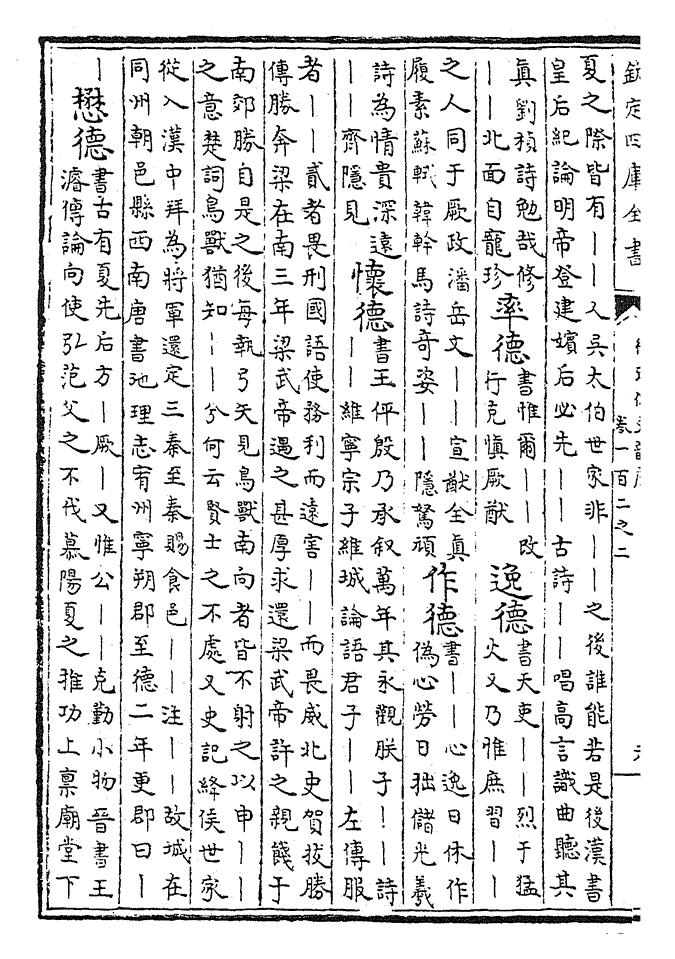 欽定四庫全書
卷一百二之二
夏之際皆有——又吳太伯世家非——之後誰能若是後漢書
皇后紀論明帝登建嬪后必先——古詩——唱高言識曲聽其
真劉楨詩勉哉修
——北面自寵珍
率德
書惟爾——改
行克慎厥猷
逸德
書天吏——烈于猛
火又乃惟庶習——
之人同于厥政潘岳文——宣猷全真
履素蘇軾韓幹馬詩奇姿——隱駑頑
作德
書——心逸日休作
偽心勞日拙儲光羲
詩為情貴深遠
——齊隱見
懷德
書王伻殷乃承叙萬年其永觀朕子——詩
——維寧宗子維城論語君子——左傳服
者——貳者畏刑國語使務利而遠害——而畏威北史賀拔勝
傳勝奔梁在南三年梁武帝遇之甚厚求還梁武帝許之親餞于
南郊勝自是之後每執弓矢見鳥獸南向者皆不射之以申——
之意楚詞鳥獸猶知——兮何云賢士之不處又史記絳侯世家
從入漢中拜為將軍還定三秦至秦賜食邑——注——故城在
同州朝邑縣西南唐書地理志宥州寧朔郡至德二年更郡曰—
—
懋德
書古有夏先后方—厥—又惟公——克勤小物晉書王
濬傳論向使弘范父之不伐慕陽夏之推功上稟廟堂下